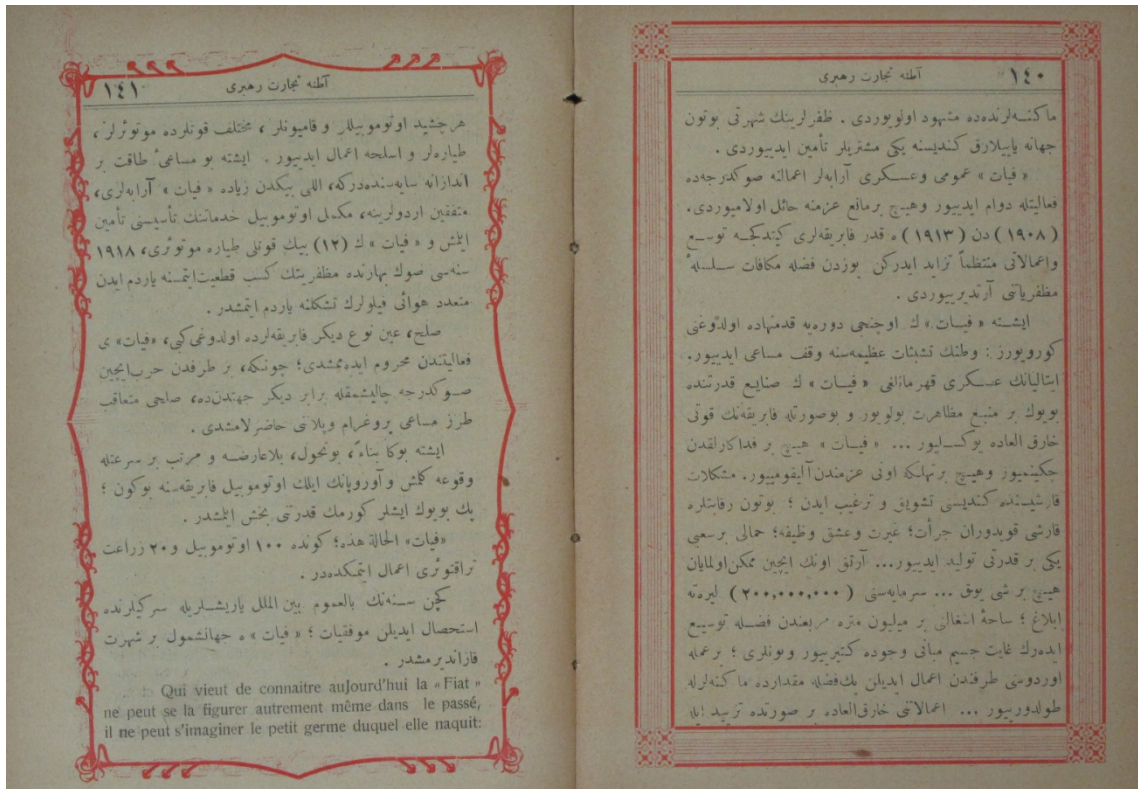 ١٤٠ آطنه تجارت رهبرى
ماكنه‌لرنده‌ده مشهود اولويوردى . ظفرلرينك شهرتى بوتون
جهانه ياييلارق كنديسنه يكى مشتريلر تأمين ايدييوردى .
« فيات » عمومى وعسكرى آرابه‌لر اعمالنه صوكدرجه‌ده
فعاليتله دوام ايدييور وهيچ برمانع عزمنه حائل اولاميوردى.
( ١٩٠٨ ) دن ( ١٩١٣ ) ه قدر فابريقه‌لرى كيتدكجه توسع
واعمالاتى منتظماً تزايد ايدركن يوزدن فضله مكافات سلسلهٔ
مظفرياتنى آرتديرييوردى .
ايشته « فيات » ك اوچنجى دوره‌يه قدمنهاده اولدوغنى
كورويورز : وطنك تشبثات عظيمه‌سنه وقف مساعى ايدييور.
ايتاليانك عسكرى قهرمانلغى « فيات » ك صنايع قدرتنده
بويوك بر منبع مظاهرت بولويور و بوصورتله فابريقه‌نك قوتى
خارق العاده يوكسلييور ... « فيات » هيچ بر فداكارلقدن
چكينميور وهيچ برتهلكه اونى عزمندن آليقوميور. مشكلات
قارشيسنده كنديسنى تشويق و ترغيب ايدن ؛ بوتون رقابتلره
قارشى قويدوران جرأت؛ غيرت وعشق وظيفه؛ حمالى برسعيى
يكى بر قدرتى توليد ايدييور... آرتق اونك ايچين ممكن‌اولمايان
هيچ بر شى يوق ... سرمايه‌سنى ( ٢٠٠,٠٠٠,٠٠٠ ) ليره‌ته
ابلاغ ؛ ساحهٔ اشغالنى بر ميليون متره مربعندن فضله توسيع
ايده‌رك غايت جسيم مبانى وجوده كتيرييور وبونلرى ؛ برعمله
اوردوسى طرفندن اعمال ايديلن پك‌فضله مقدارده ماكنه‌لرله
طولدورييور ... اعمالاتنى خارق‌العاده بر صورتده تزييد ايله
آطنه تجارت رهبرى ١٤١
هرچشيد اوتوموبيللر و قاميونلر ، مختلف قوتلرده موتورلر ،
طياره‌لر و اسلحه اعمال ايدييور . ايشته بو مساعىٔ طاقت بر
اندازانه سايه‌سنده‌دركه، اللى بيكدن زياده « فيات » آرابه‌لرى،
متفقين اردولرينه، مكمل اوتوموبيل خدماتنك تأسيسنى تأمين
ايتمش و « فيات » ك (١٢) بيك قوتلى طياره موتورى، ١٩١٨
سنه‌سى صوك بهارنده مظفريتك كسب قطعيت‌ايتمسنه ياردم ايدن
متعدد هوائى فيلولرك تشكلنه ياردم ايتمشدر .
صلح، عين نوع ديكر فابريقه‌لرده اولدوغى‌كبى، «فيات» ى
فعاليتندن محروم ايده‌ممشدى؛ چونكه، بر طرفدن حرب‌ايچين
صوكدرجه چاليشمقله برابر ديكر جهتدن‌ده، صلحى متعاقب
طرز مساعى پروغرام وپلاننى حاضرلامشدى .
ايشته بوكا بناءً، بوتحول، بلاعارضه و مرتب بر سرعتله
وقوعه كلمش و آوروپانك ايلك اوتوموبيل فابريقه‌سنه بوكون ؛
پك بويوك ايشلر كورمك قدرتنى بخش ايلمشدر .
«فيات» الحالة هذه؛ كونده ١٠٠ اوتوموبيل و٢٠ زراعت
تراقتورى اعمال ايتمكده‌در .
كچن سنه‌نك بالعموم بين الملل ياريشلريله سركيلرنده
استحصال ايديلن موفقيات ؛ « فيات » ه جهانشمول بر شهرت
قازانديرمشدر .
Qui vieut de connaitre auJourd'hui la « Fiat »
ne peut se la figurer autrement même dans le passé,
il ne peut s'imaginer le petit germe duquel elle naquit: